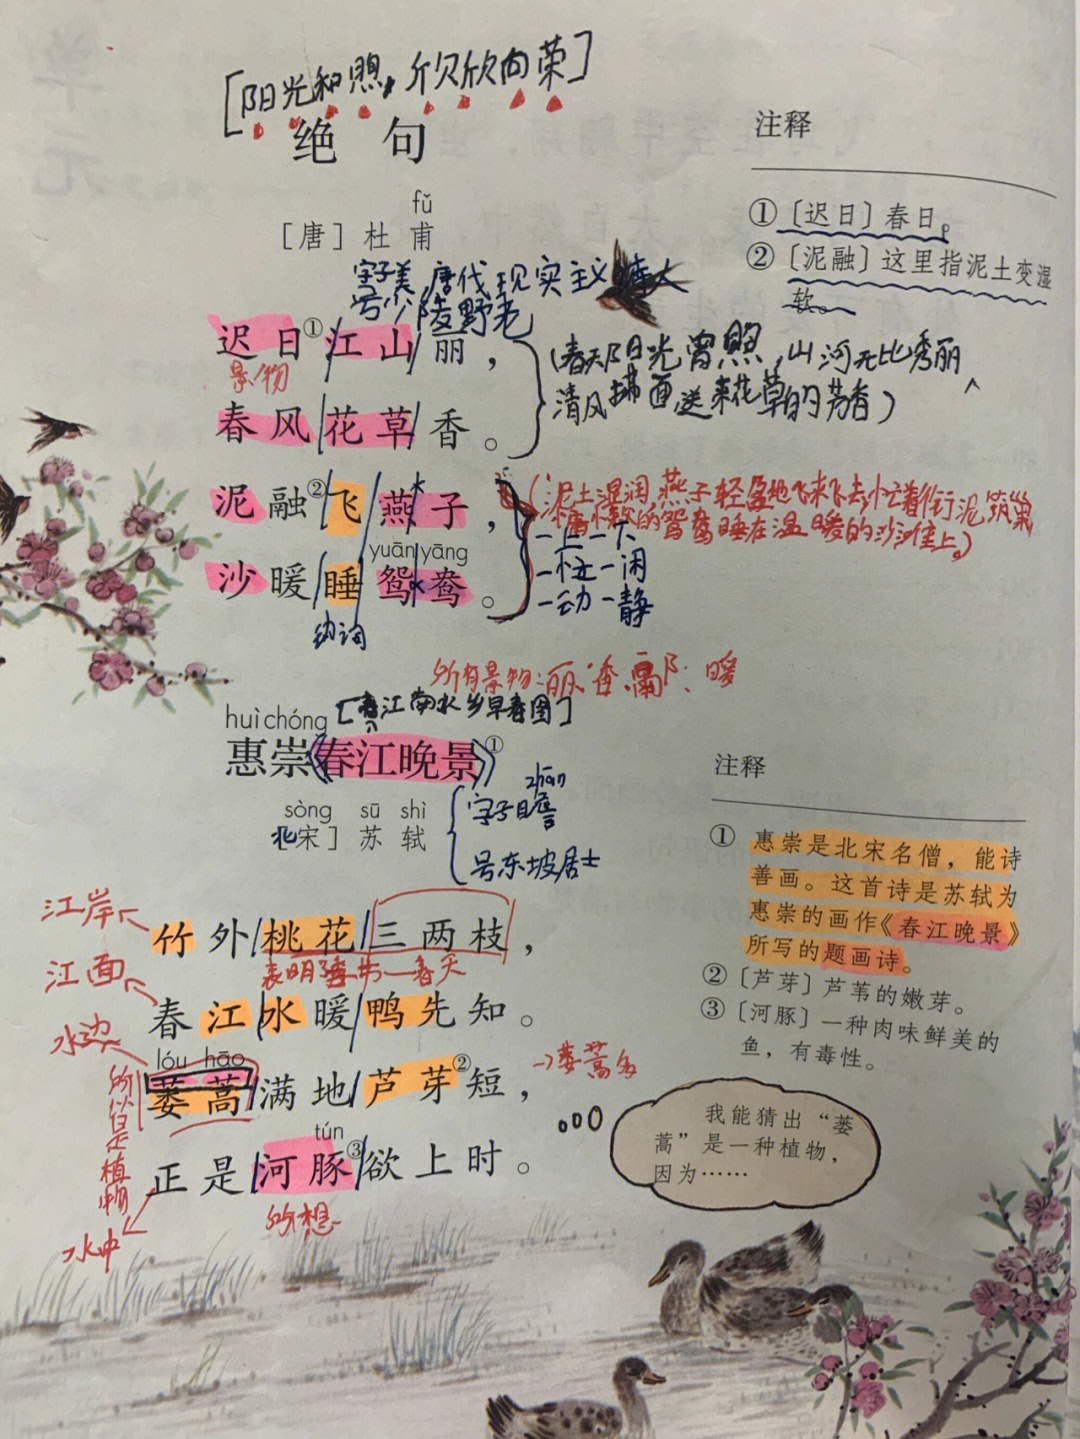 [阳光和煦,欣欣向荣]
绝句
fǔ
［唐］杜甫
字子美,唐代现实主义诗人
号少陵野老
迟日①江山丽，
景物
春风花草香。
(春天阳光普照,山河无比秀丽
清风拂面送来花草的芳香)
泥融②飞燕子，
yuān yāng
沙暖睡鸳鸯。
动词
(泥土湿润,燕子轻盈地飞来飞去,忙着衔泥筑巢
的鸳鸯睡在温暖的沙滩上。)
一上一下
一忙一闲
一动一静
注释
①〔迟日〕春日。
②〔泥融〕这里指泥土变湿
软。
所有景物:丽、香、融、暖
[春江南水乡早春图]
huì chóng
惠崇《春江晚景》①
sòng sū shì
[北宋］苏轼
zhān
字子瞻
号东坡居士
江岸
竹外桃花三两枝，
表明 春天
江面
春江水暖鸭先知。
水边
lóu hāo
蒌蒿满地芦芽②短，
→蒌蒿
所皆是植物
tún
正是河豚③欲上时。
所想
水中
注释
① 惠崇是北宋名僧，能诗
善画。这首诗是苏轼为
惠崇的画作《春江晚景》
所写的题画诗。
②〔芦芽〕芦苇的嫩芽。
③〔河豚〕一种肉味鲜美的
鱼，有毒性。
我能猜出“蒌
蒿”是一种植物，
因为……